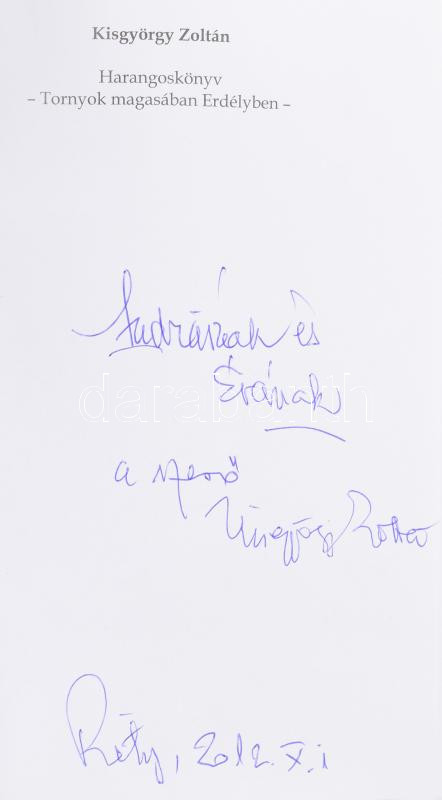 Kisgyörgy Zoltán
Harangoskönyv
– Tornyok magasában Erdélyben –
Andrásnak és
Évának
darabanth
a szerző
Kisgyörgy Zoltán
Réty, 2012. X. 1